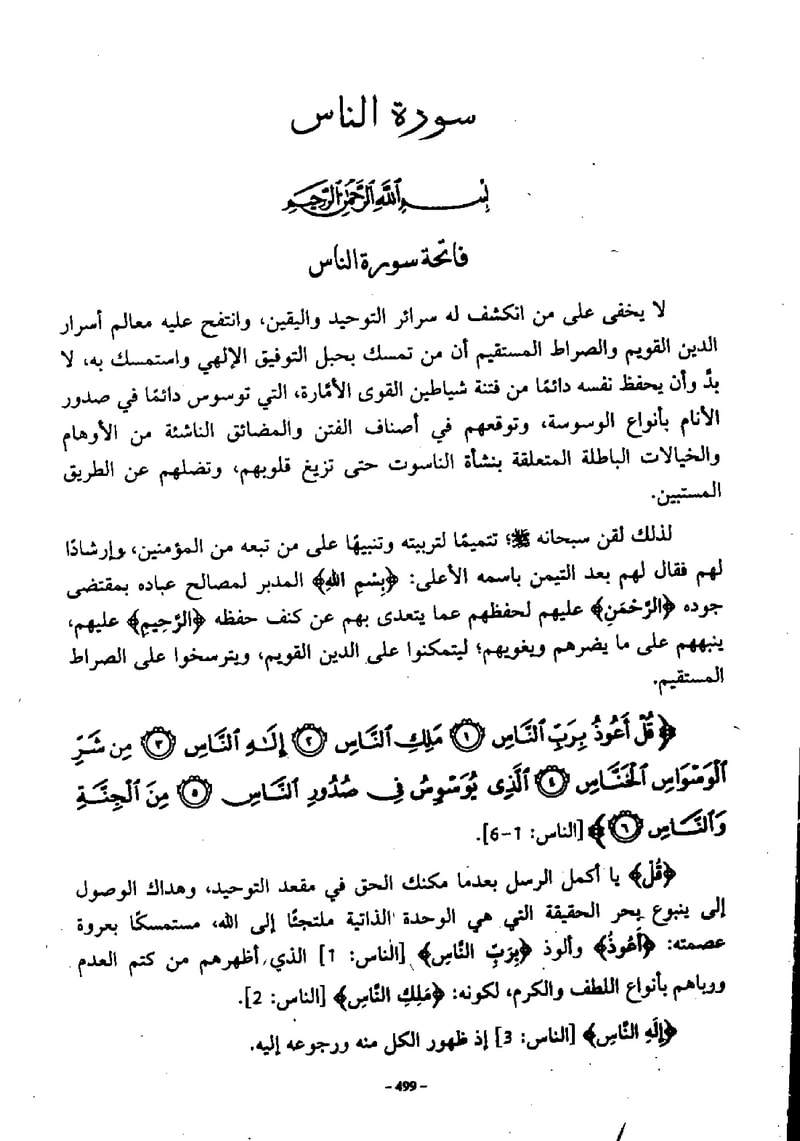 سورة الناس
بِسْمِ اللَّهِ الرَّحْمَٰنِ الرَّحِيمِ
فاتحة سورة الناس
لا يخفى على من انكشف له سرائر التوحيد واليقين، وانتفح عليه معالم أسرار
الدين القويم والصراط المستقيم أن من تمسك بحبل التوفيق الإلهي واستمسك به، لا
بدَّ وأن يحفظ نفسه دائمًا من فتنة شياطين القوى الأمَّارة، التي توسوس دائمًا في صدور
الأنام بأنواع الوسوسة، وتوقعهم في أصناف الفتن والمضائق الناشئة من الأوهام
والخيالات الباطلة المتعلقة بنشأة الناسوت حتى تزيغ قلوبهم، وتضلهم عن الطريق
المستبين.
لذلك لقن سبحانه ﷺ؛ تتميمًا لتربيته وتنبيهًا على من تبعه من المؤمنين، وإرشادًا
لهم فقال لهم بعد التيمن باسمه الأعلى: ﴿بِسْمِ اللهِ﴾ المدبر لمصالح عباده بمقتضى
جوده ﴿الرَّحْمَنِ﴾ عليهم لحفظهم عما يتعدى بهم عن كنف حفظه ﴿الرَّحِيمِ﴾ عليهم،
ينبههم على ما يضرهم ويغويهم؛ ليتمكنوا على الدين القويم، ويترسخوا على الصراط
المستقيم.
﴿قُلْ أَعُوذُ بِرَبِّ النَّاسِ ١ مَلِكِ النَّاسِ ٢ إِلَٰهِ النَّاسِ ٣ مِن شَرِّ
الْوَسْوَاسِ الْخَنَّاسِ ٤ الَّذِي يُوَسْوِسُ فِي صُدُورِ النَّاسِ ٥ مِنَ الْجِنَّةِ
وَالنَّاسِ ٦﴾ [الناس: 1-6].
﴿قُلْ﴾ يا أكمل الرسل بعدما مكنك الحق في مقعد التوحيد، وهداك الوصول
إلى ينبوع بحر الحقيقة التي هي الوحدة الذاتية ملتجئًا إلى الله، مستمسكًا بعروة
عصمته: ﴿أَعُوذُ﴾ وألوذ ﴿بِرَبِّ النَّاسِ﴾ [الناس: 1] الذي أظهرهم من كتم العدم
ورباهم بأنواع اللطف والكرم، لكونه: ﴿مَلِكِ النَّاسِ﴾ [الناس: 2].
﴿إِلَهِ النَّاسِ﴾ [الناس: 3] إذ ظهور الكل منه ورجوعه إليه.
- 499 -